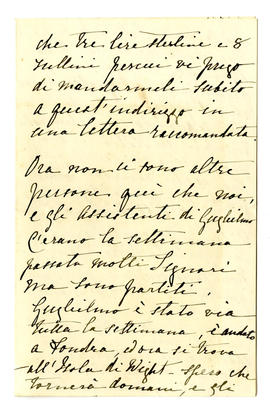 che tre lire sterline e 8
scellini percui vi prego
di mandarmeli subito
a quest'indirizzo in
una lettera raccomandata.
Ora non ci sono altre
persone quì che noi,
e gli assistenti di Guglielmo
C'erano la settimana
passata molti Signori
ma sono partiti.
Guglielmo è stato via
tutta la settimana, è andato
a Londra, ora si trova
all'Isola di Wight - Spero che
tornerà domani, e gli